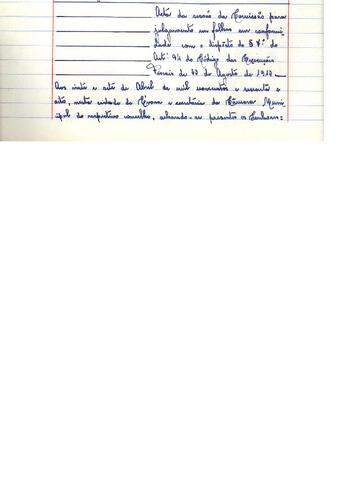 Acta da sessão da Comissão para
julgamento em falhas em conformi-
dade com o disposto do § º do
Artº 94 do Código das Execuções
Fiscais de 23 de Agosto de 1913
Aos vinte e oito de Abril de mil novecentos e sessenta e
oito, nesta cidade de e secretaria da Câmara Muni-
cipal do respectivo concelho, achando-se presentes os Senhores: